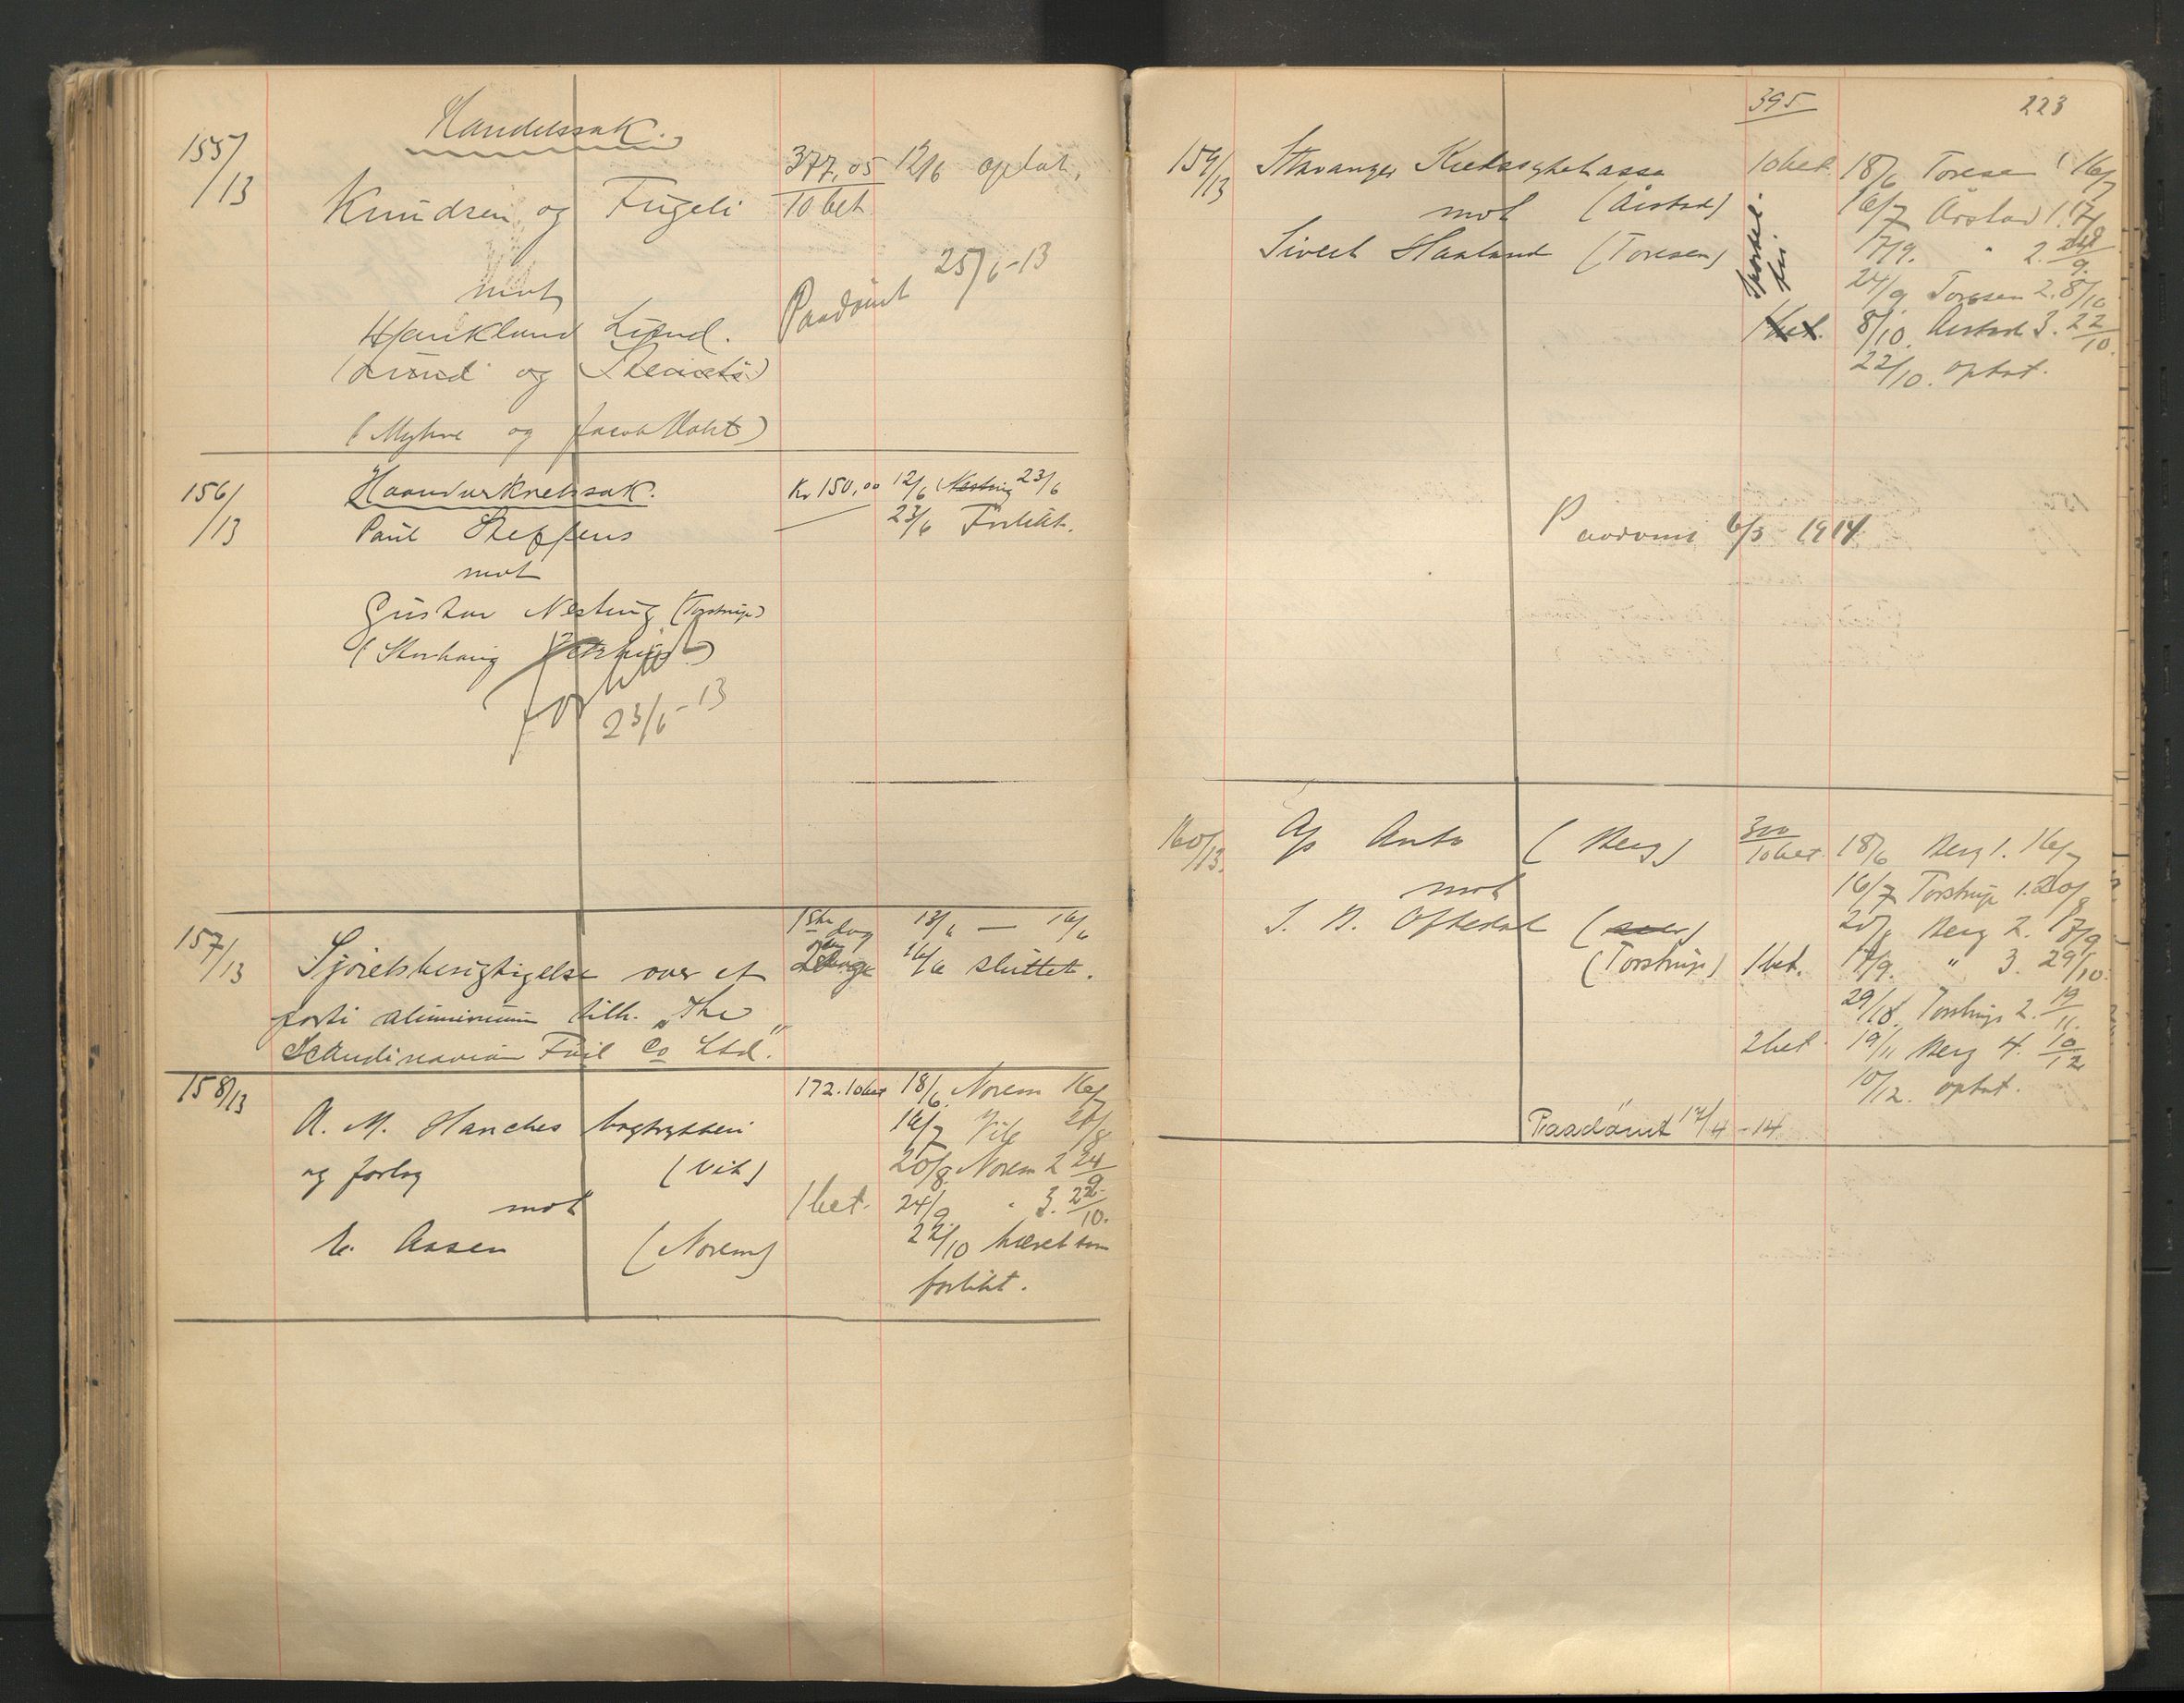 155/13
Handelssak.
Knudsen og Fugeli
377,05 12/6 optat.
10 bet
mot
Haukland Lund.
Paadømt 25/6-13
(Lund og
(Myhre og Jacob Holst)
156/13
Haandverkretssak.
Kr 150,00 12/6 Nesting 23/6
23/6 Forlikt.
Paul Steffens
mot
Gustav Nesting (Torstrup)
(Storhaug
forlikt
23/6-13
157/13
1ste dag 13/6 — 16/6
16/6 sluttet.
Sjøretsbesigtigelse over et
parti aluminium tilh. "The
Scandinavian Foil Co Ltd."
158/13
172. 10 bet 18/6 Norem 16/7
A. M. Hanches bogtrykkeri
16/7 Vik 20/8
og forlag (Vik)
20/8 Norem 2 24/9
mot
1 bet. 24/9 " 3. 22/10.
E. Aasen (Norem)
22/10 hævet som
forlikt.
395
223
159/13
Stavanger Kretssykekasse
10 bet. 18/6 Toresen 1 16/7
mot (Årstad)
16/7 Årstad 1. 17/9
Sivert Haaland (Toresen)
Sportel-
fri
17/9. " 2. 24/9.
24/9 Toresen 2. 8/10
1 bet. 8/10. Aarstad 3. 22/10.
22/10. optat.
Paadømt 6/3 1914
160/13.
A/s Auto (Berg)
300
10 bet. 18/6 Berg 1. 16/7
mot
16/7 Torstrup 1. 20/8
S. B. Oftedal (selv)
20/8 Berg 2. 17/9
(Torstrup) 1 bet. 17/9. " 3. 29/10.
29/10. Torstrup 2. 19/11.
2 bet. 19/11 Berg 4. 10/12
10/12. optat.
Paadømt 17/4 -14